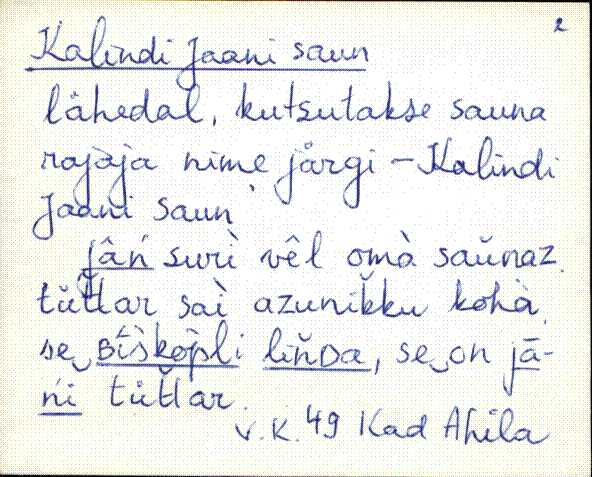 2
Kalindi Jaani saun
lähedal, kutsutakse sauna
rajaja nime järgi – Kalindi
Jaani saun
jâń surì vêl omà saŭnaz.
tŭt̆tar saì azunik̆ku kohà,
se‿Bīskop̀li lĭńDa, se‿on jā-
ńi tŭt̆tar.
V.K. 49 Kad Ahila